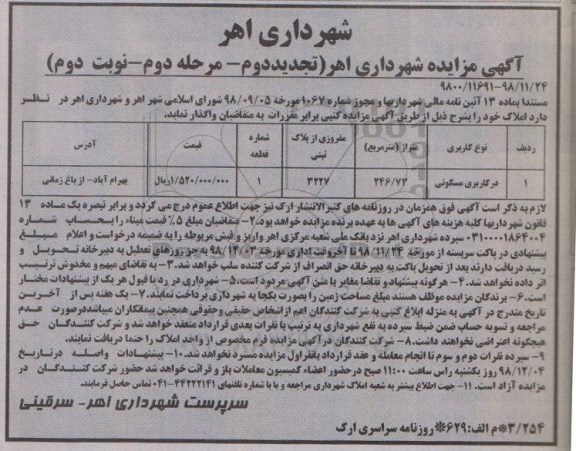 شهرداری اهر
آگهی مزایده شهرداری اهر(تجدیددوم- مرحله دوم-نوبت دوم)
۹۸۰۰/۱۱۶۹۱-۹۸/۱۱/۲۴
مستندا بماده ۱۳ آئین نامه مالی شهرداریها و مجوز شماره ۱۰۶۷ مورخه ۹۸/۰۹/۰۵ شورای اسلامی شهر اهر و شهرداری اهر در نظر
دارد املاک خود را بشرح ذیل از طریق آگهی مزایده کتبی برابر مقررات به متقاضیان واگذار نماید.
ردیف نوع کاربری متراژ(مترمربع) مفروزی از پلاک ثبتی شماره قطعه قیمت آدرس
۱ درکاربری مسکونی ۲۴۶/۷۳ ۳۲۲۷ ۱ ۱/۵۲۰/۰۰۰/۰۰۰ریال بهرام آباد- از باغ زمانی
لازم به ذکر است آگهی فوق همزمان در روزنامه های کثیرالانتشار ارک نیز جهت اطلاع عموم درج می گردد و برابر تبصره یک ماده ۱۳
قانون شهرداریها کلیه هزینه های آگهی ها به عهده برنده مزایده خواهد بود.۲- متقاضیان مبلغ ۵٪ قیمت مبناء را بحساب شماره
۳۱۰۰۰۰۱۸۶۴۰۰۴ سپرده شهرداری اهر نزد بانک ملی شعبه مرکزی اهر واریز و فیش مربوطه را به ضمیمه درخواست و اعلام مبلغ
پیشنهادی در پاکت سربسته از مورخه ۹۸/۱۱/۲۳ تا آخروقت اداری مورخه ۹۸/۱۲/۰۳ به جز روزهای تعطیل به دبیرخانه تحویل و
رسید دریافت دارند بعد از تحویل پاکت به دبیرخانه حق انصراف از شرکت کننده سلب خواهد شد.۳- به تقاضای مبهم و مخدوش ترتیب
اثر داده نخواهد شد.۴- هرگونه پیشنهاد و تقاضا مغایر با متن آگهی مردود است.۵- شهرداری در رد یا قبول هر یک از پیشنهادات مختار
است.۶- برندگان مزایده موظف هستند مبلغ مساحت زمین را بصورت یکجا به شهرداری پرداخت نمایند.۷- یک هفته پس از آخرین
تاریخ مندرج در آگهی به منزله ابلاغ کتبی به شرکت کنندگان اعم ازاشخاص حقیقی وحقوقی همچنین پیمانکاران میباشددرصورت عدم
مراجعه و تسویه حساب ضمن ضبط سپرده به نفع شهرداری به ترتیب با نفرات بعدی قرارداد منعقد خواهد شد و شرکت کنندگان حق
هیچگونه اعتراضی نخواهند داشت.۸- شرکت کنندگان درآگهی مزایده فرم مخصوص از واحد املاک را حتما دریافت نمایند.
۹- سپرده نفرات دوم و سوم تا انجام معامله و عقد قرارداد بانفراول مزایده مسترد نخواهد شد.۱۰- پیشنهادات واصله درتاریخ
۹۸/۱۲/۰۴ روز یکشنبه راس ساعت ۱۱:۰۰ صبح درحضور اعضاء کمیسیون معاملات باز و قرائت خواهد شد حضور شرکت کنندگان در
مزایده آزاد است.۱۱- جهت اطلاع بیشتر به شعبه املاک شهرداری مراجعه و یا با شماره تلفنهای ۴۴۲۲۲۱۴۱-۰۴۱ تماس حاصل فرمایند.
سرپرست شهرداری اهر- سرقینی
۳/۲۵۴*م الف:۶۲۹*روزنامه سراسری ارک